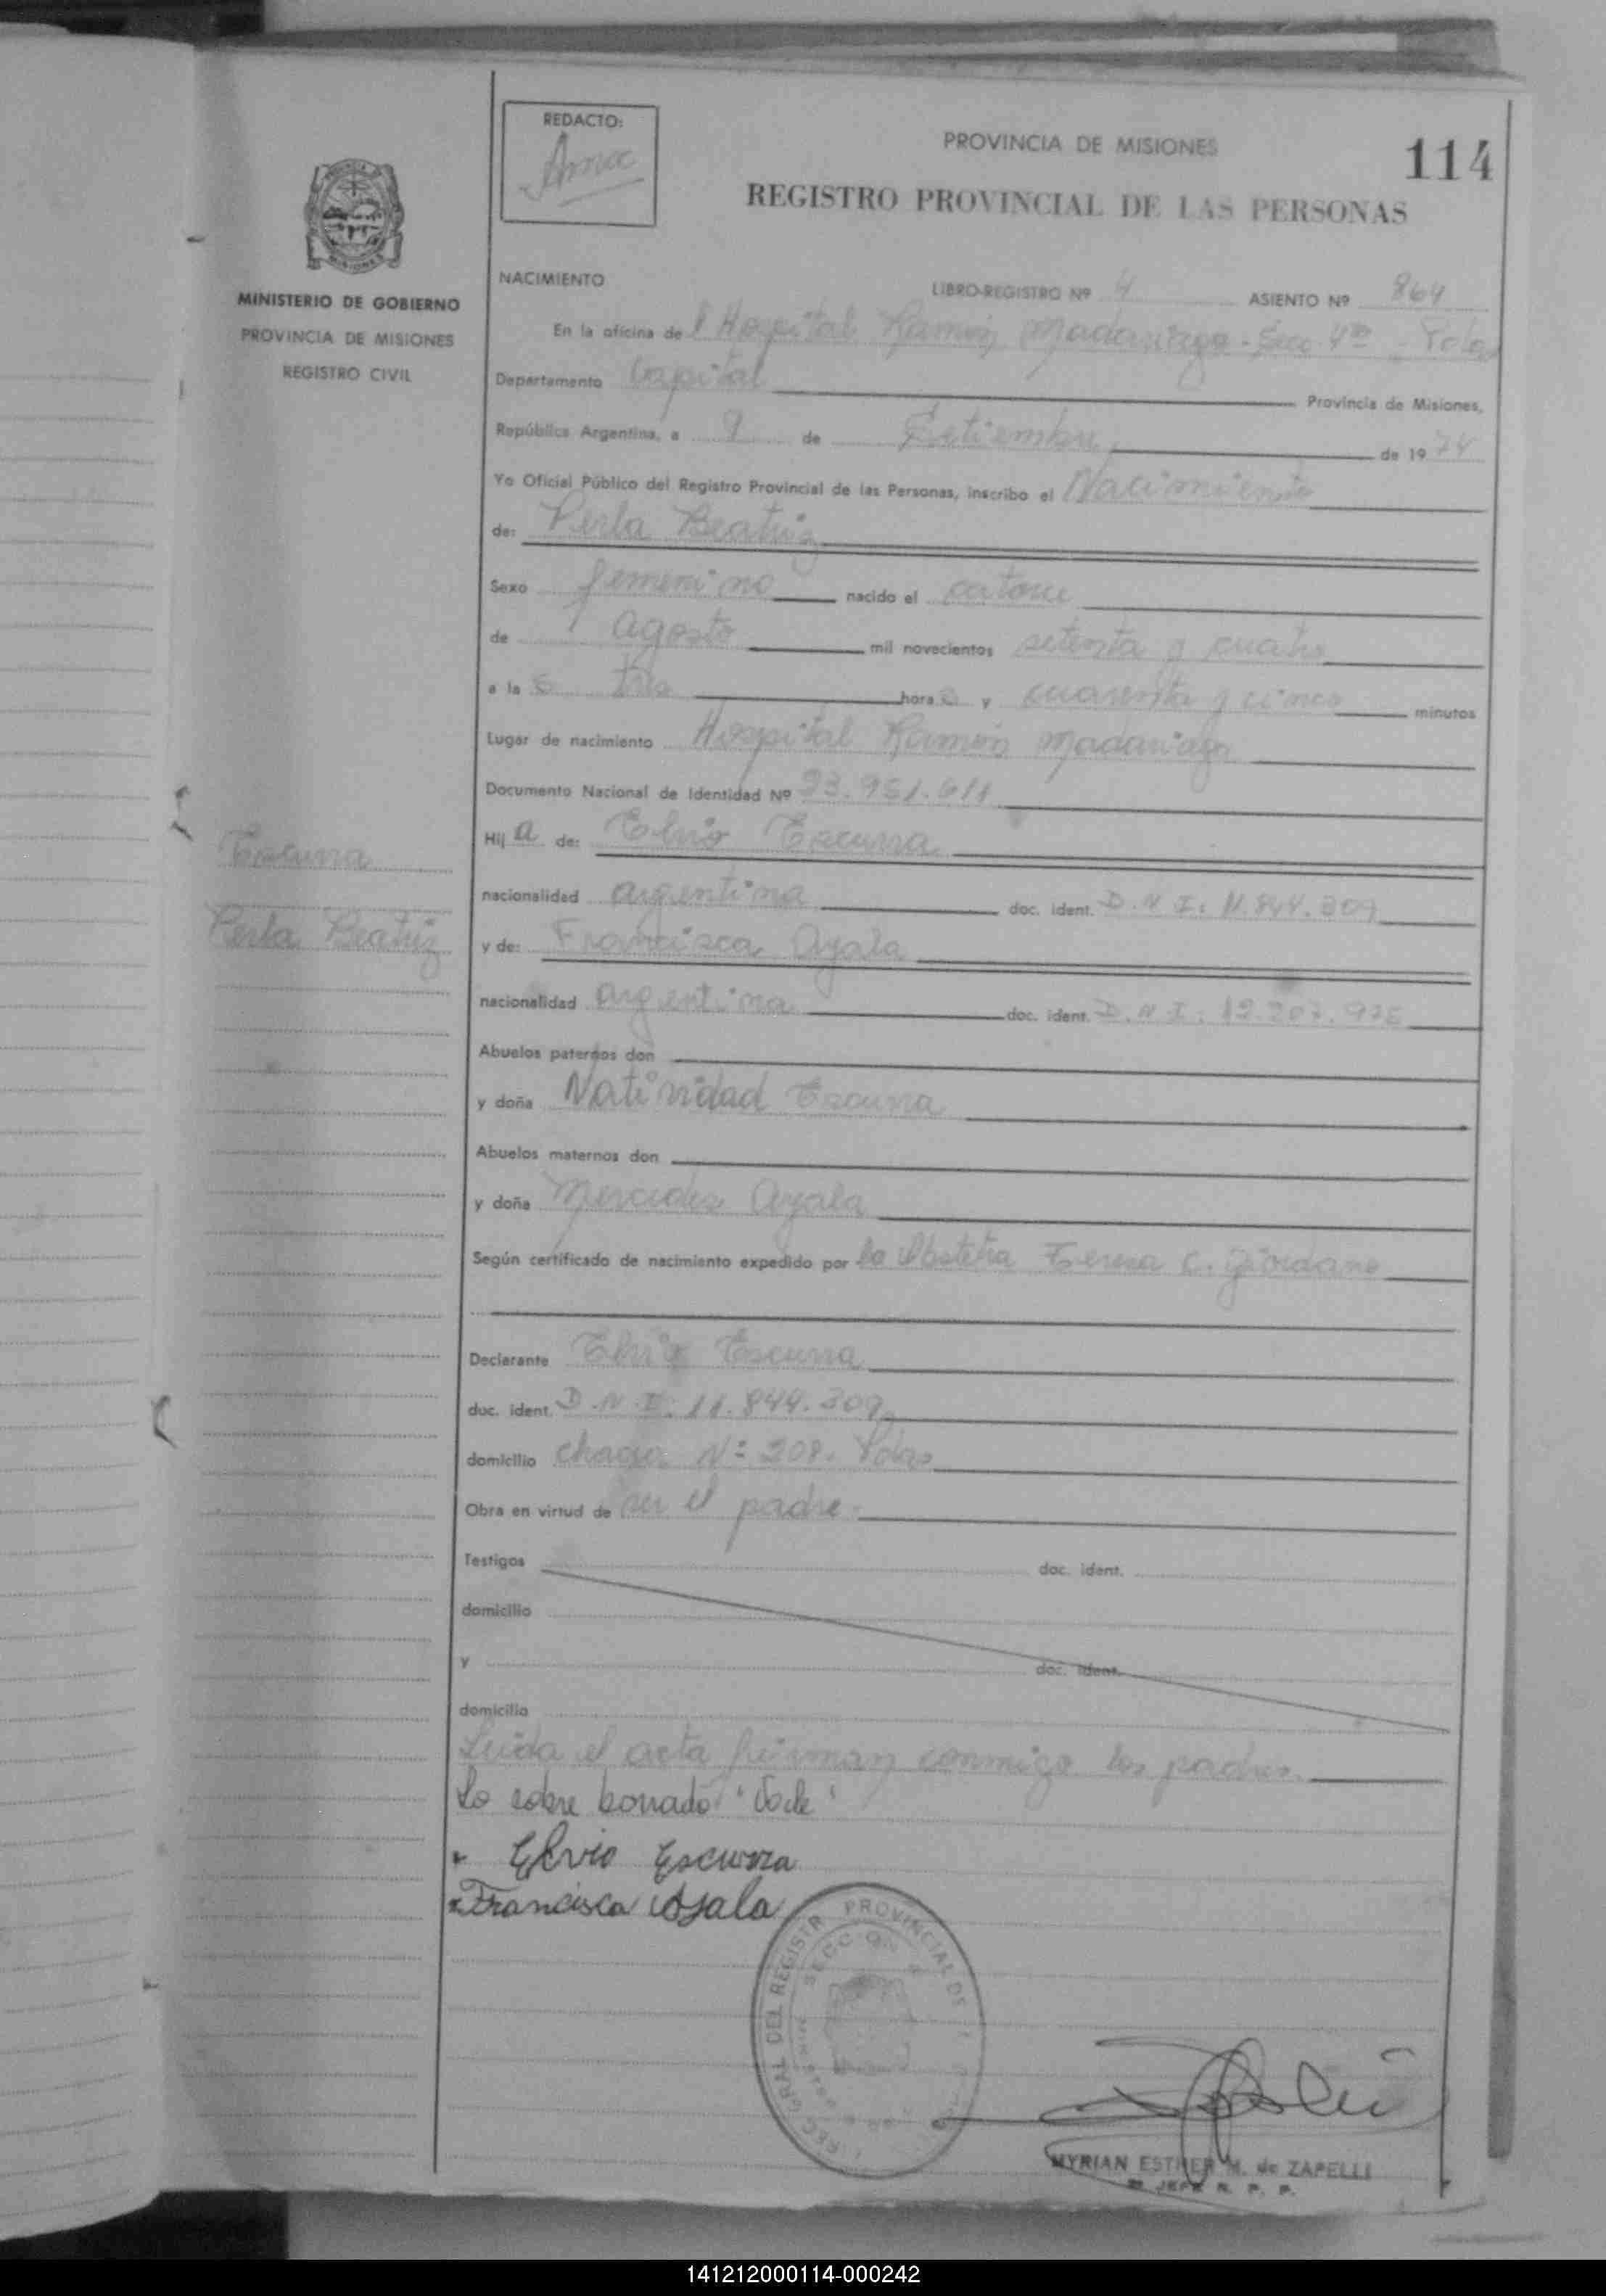 REDACTO:
PROVINCIA DE MISIONES
114
REGISTRO PROVINCIAL DE LAS PERSONAS
MINISTERIO DE GOBIERNO
PROVINCIA DE MISIONES
REGISTRO CIVIL
NACIMIENTO
LIBRO-REGISTRO Nº 4 ASIENTO Nº 864
En la oficina de l Hospital Ramón Madariaga - Secc. 4ta - Pdas
Departamento Capital Provincia de Misiones,
República Argentina, a 9 de Setiembre de 1974
Yo Oficial Público del Registro Provincial de las Personas, inscribo el Nacimiento
de: Perla Beatriz
Sexo femenino nacido el catorce
de agosto mil novecientos setenta y cuatro
a las tres horas y cuarenta y cinco minutos
Lugar de nacimiento Hospital Ramón Madariaga
Documento Nacional de Identidad Nº 23.951.611
Hija de: Elvio Escurra
Escurra
nacionalidad argentina doc. ident. D.N.I: 11.844.309
Perla Beatriz
y de: Francisca Ayala
nacionalidad argentina doc. ident. D.N.I: 12.207.975
Abuelos paternos don
y doña Natividad Escurra
Abuelos maternos don
y doña Mercedes Ayala
Según certificado de nacimiento expedido por la Obstetra Teresa C. Giordano
Declarante Elvio Escurra
doc. ident. D.N.I: 11.844.309
domicilio chacra Nº 208. Pdas
Obra en virtud de ser el padre.
Testigos doc. ident.
domicilio
y doc. ident.
domicilio
Leida el acta firman conmigo los padres.
Lo sobre borrado
Elvio Escurra
Francisca Ayala
PROVINCIAL DE
GRAL DEL REGISTR
SECC
MYRIAN ESTHER M. de ZAPELLI
JEFE R. P. P.
141212000114-000242